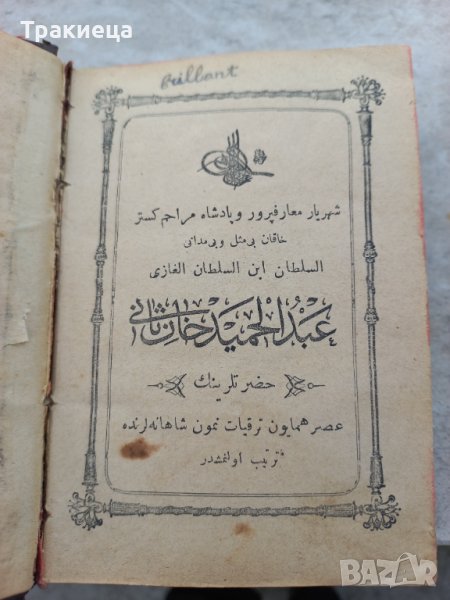 Тракиеца
Brillant
شهریار معارفپرور و پادشاه مراحم کستر
خاقان بی مثل و بی مدانی
السلطان ابن السلطان الغازی
عبد الحمید خان ثانی
حضرتلرینك
عصر همایون ترقیات نمون شاهانه لرنده
ترتیب اولنمشدر
BAZAR